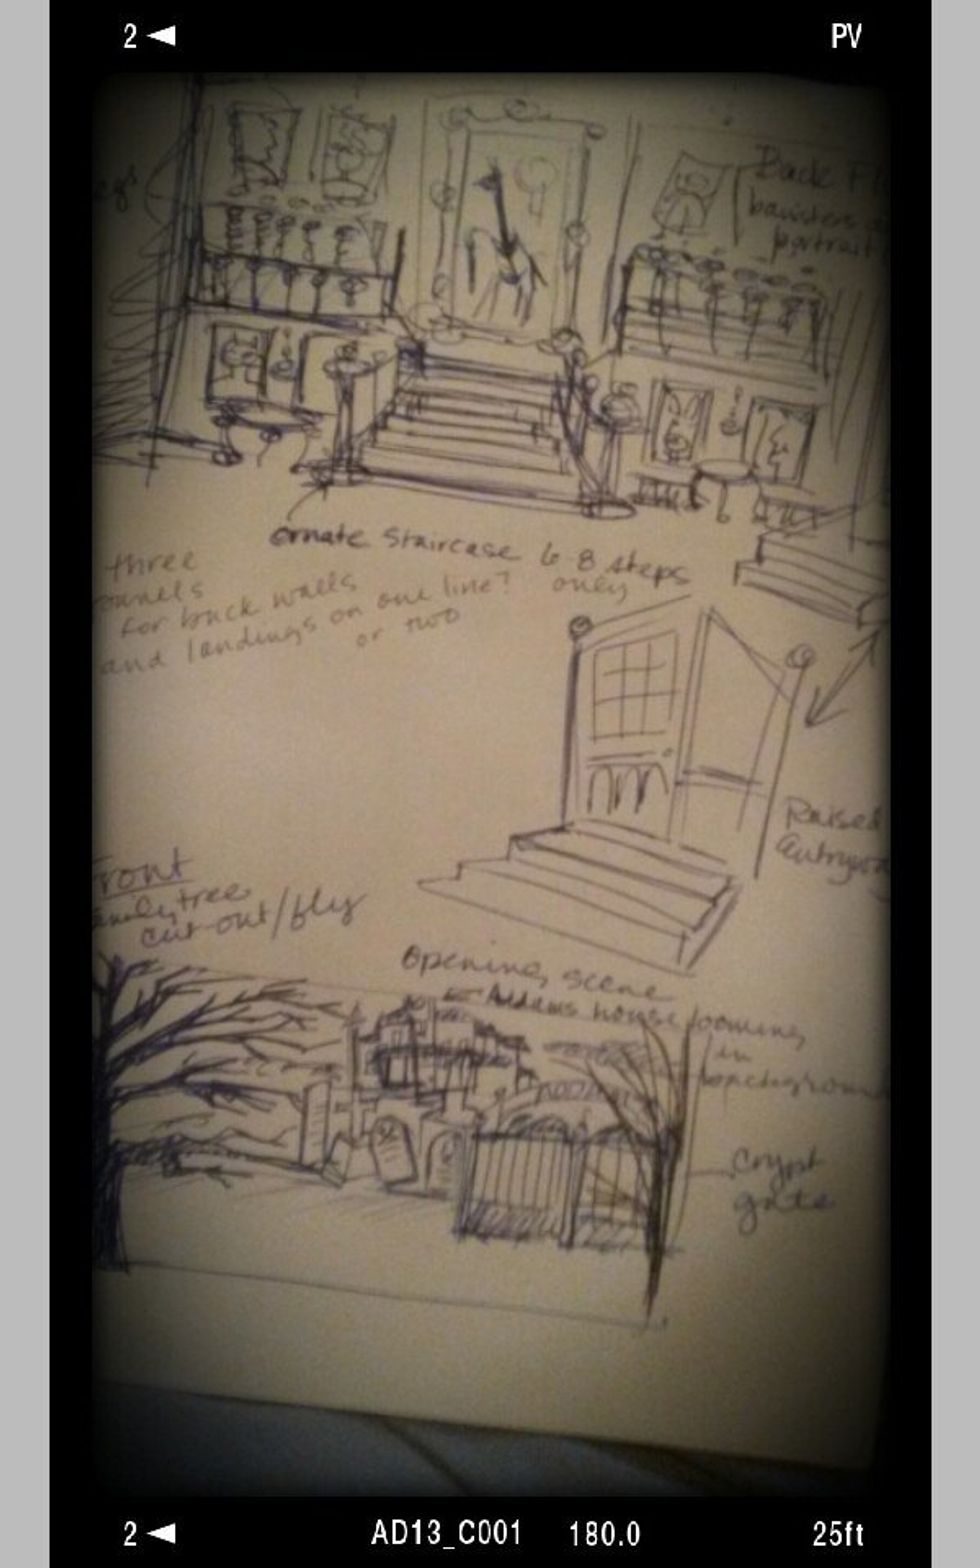 2 ◄ PV
Back
banisters
portrait
ornate staircase 6-8 steps
only
three
for back walls
and landings on one line?
or two
Raised
Front
family tree
cut-out/fly
Opening scene
Addams house looming
in
background
Crypt
gate
2 ◄ AD13_C001 180.0 25ft